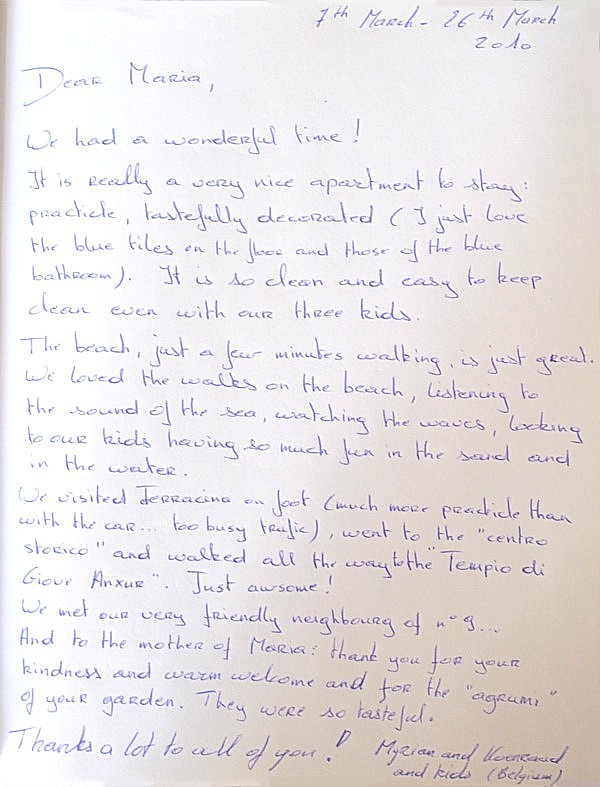 7th March - 26th March
2010
Dear Maria,
We had a wonderful time!
It is really a very nice apartment to stay:
practicle, tastefully decorated (I just love
the blue tiles on the floor and those of the blue
bathroom). It is so clean and easy to keep
clean even with our three kids.
The beach, just a few minutes walking, is just great.
We loved the walks on the beach, listening to
the sound of the sea, watching the waves, looking
to our kids having so much fun in the sand and
in the water.
We visited Terracina on foot (much more practicle than
with the car... too busy trafic), went to the "centro
storico" and walked all the way to the "Tempio di
Giove Anxur". Just awsome!
We met our very friendly neighbourg of n° 9...
And to the mother of Maria: thank you for your
kindness and warm welcome and for the "agrumi"
of your garden. They were so tasteful.
Thanks a lot to all of you! Myriam and Koenraad
and kids (Belgium)